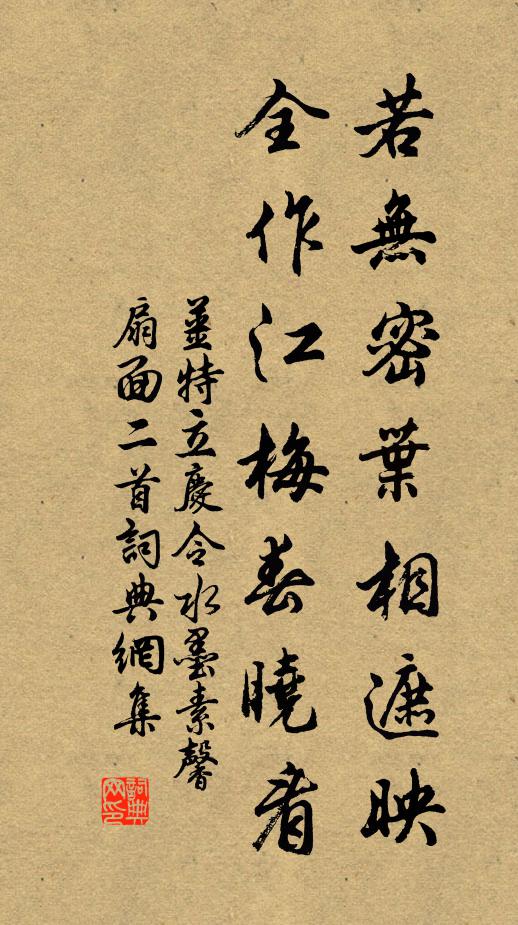 若無密葉相遮映
全作江梅春曉看
薑特立慶令水墨素馨
扇面二首詞典網集
詞典
网印